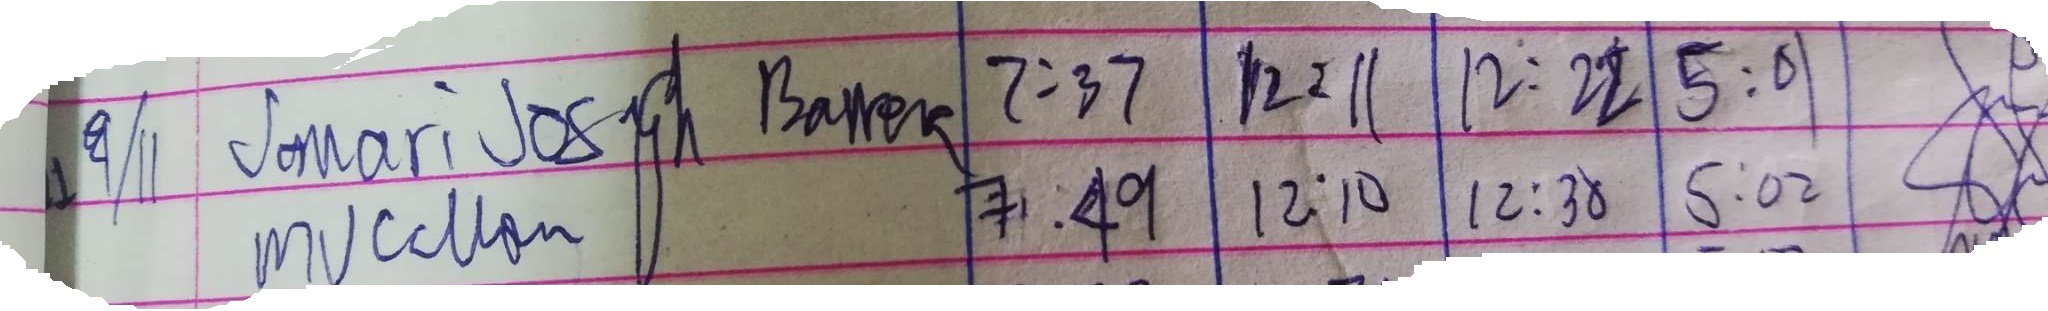 9/11 Jomari Joseph Barrera 7:37 12:11 12:22 5:01
MV Collon 7:49 12:10 12:30 5:02